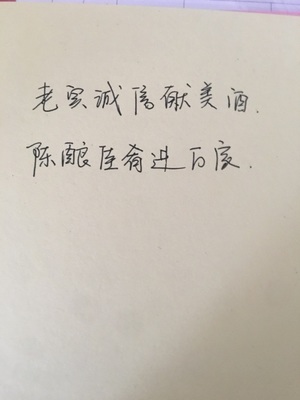 老实诚信献美酒.
陈酿佳肴进百家.